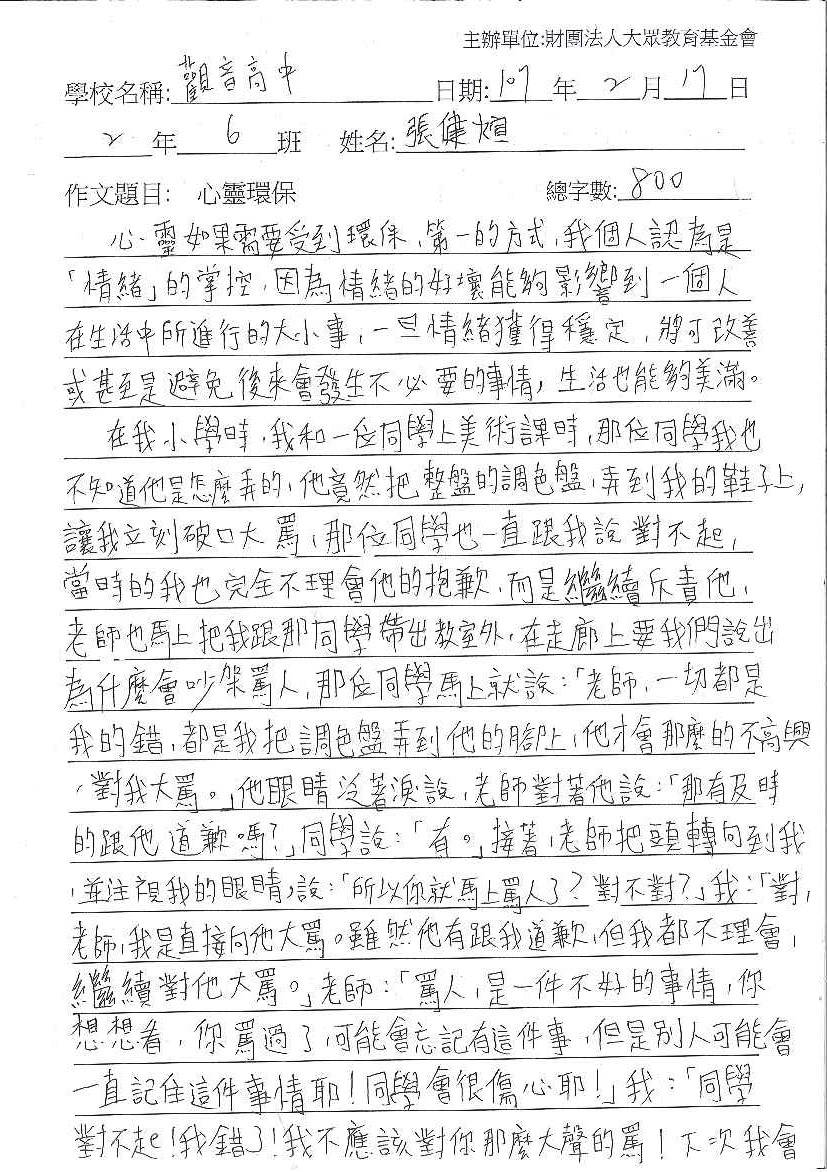 主辦單位:財團法人大眾教育基金會
學校名稱: 觀音高中 日期: 107 年 2 月 17 日
2 年 6 班 姓名: 張健煊
作文題目: 心靈環保 總字數: 800
心靈如果需要受到環保,第一的方式,我個人認為是
「情緒」的掌控,因為情緒的好壞能夠影響到一個人
在生活中所進行的大小事,一旦情緒獲得穩定,將可改善
或甚至是避免後來會發生不必要的事情,生活也能夠美滿。
在我小學時,我和一位同學上美術課時,那位同學我也
不知道他是怎麼弄的,他竟然把整盤的調色盤,弄到我的鞋子上,
讓我立刻破口大罵,那位同學也一直跟我說對不起,
當時的我也完全不理會他的抱歉,而是繼續斥責他,
老師也馬上把我跟那同學帶出教室外,在走廊上要我們說出
為什麼會吵架罵人,那位同學馬上就說:「老師,一切都是
我的錯,都是我把調色盤弄到他的腳上,他才會那麼的不高興
,對我大罵。」他眼睛泛著淚說,老師對著他說:「那有及時
的跟他道歉嗎?」同學說:「有。」接著,老師把頭轉向到我
,並注視我的眼睛,說:「所以你就馬上罵人了?對不對?」我:「對,
老師,我是直接向他大罵。雖然他有跟我道歉,但我都不理會,
繼續對他大罵。」老師:「罵人,是一件不好的事情,你
想想看,你罵過了,可能會忘記有這件事,但是別人可能會
一直記住這件事情耶!同學會很傷心耶!」我:「同學
對不起!我錯了!我不應該對你那麼大聲的罵!下次我會